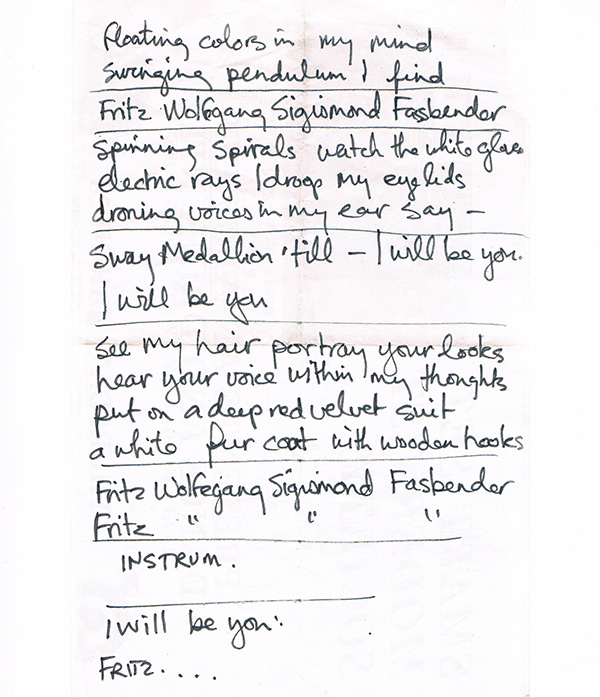 floating colors in my mind
swinging pendulum I find
Fritz Wolfegang Sigismond Fasbender
spinning spirals watch the white glove
electric rays I droop my eyelids
droning voices in my ear say -
Sway Medallion 'till - I will be you.
I will be you
see my hair portray your looks
hear your voice within my thoughts
put on a deep red velvet suit
a white fur coat with wooden hooks
Fritz Wolfegang Sigismond Fasbender
Fritz " " "
INSTRUM.
I will be you:.
FRITZ. . . .